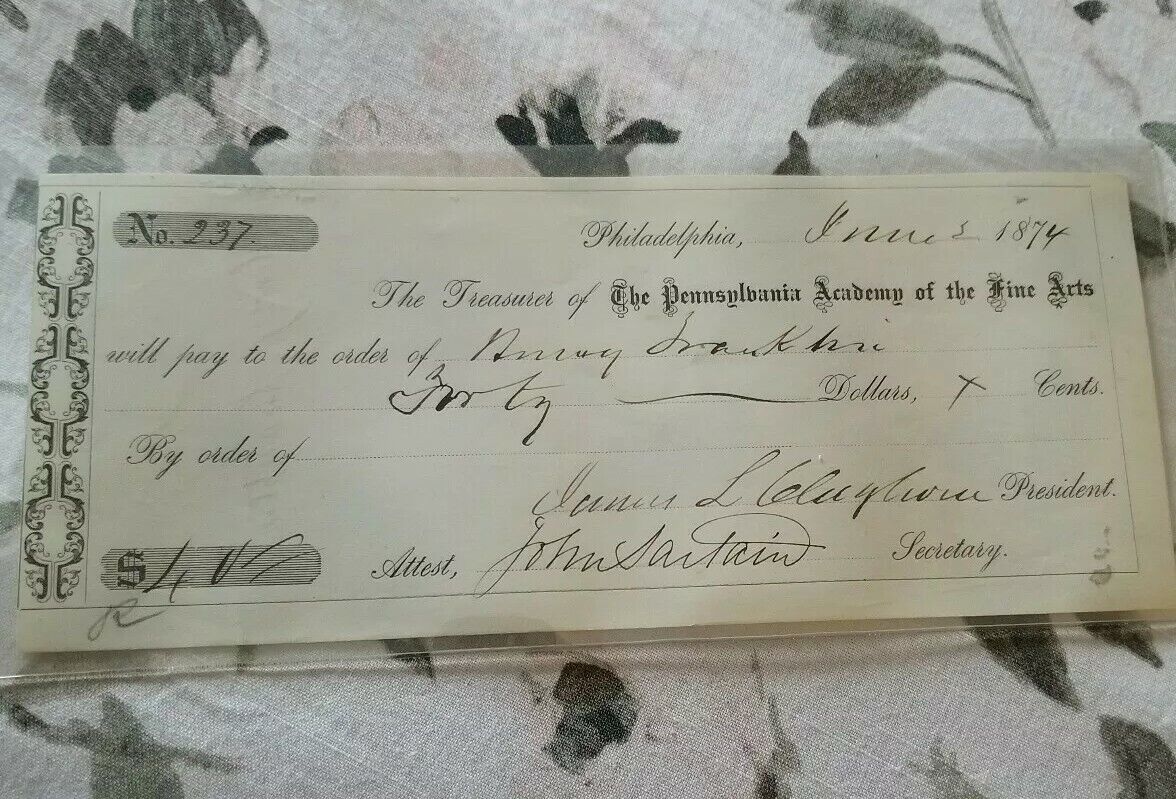 No. 237. Philadelphia, June 1874
The Treasurer of The Pennsylvania Academy of the Fine Arts
will pay to the order of Franklin
Forty Dollars, x Cents.
By order of
James L Claghorn President.
$40 Attest, John Sartain Secretary.
R